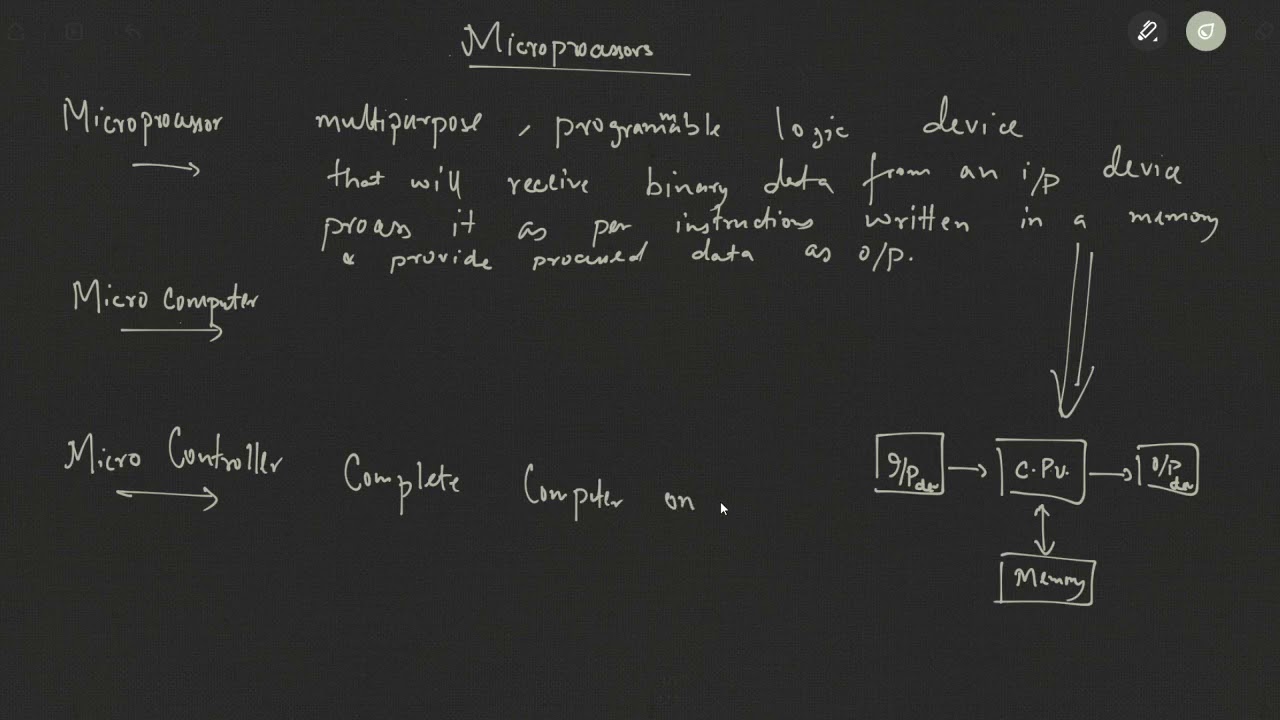 Microprocessors
Microprocessor multipurpose, programmable logic device
that will receive binary data from an i/p device
process it as per instructions written in a memory
& provide processed data as o/p.
Micro Computer
Micro Controller Complete Computer on
I/P dev C.P.U. O/P dev
Memory